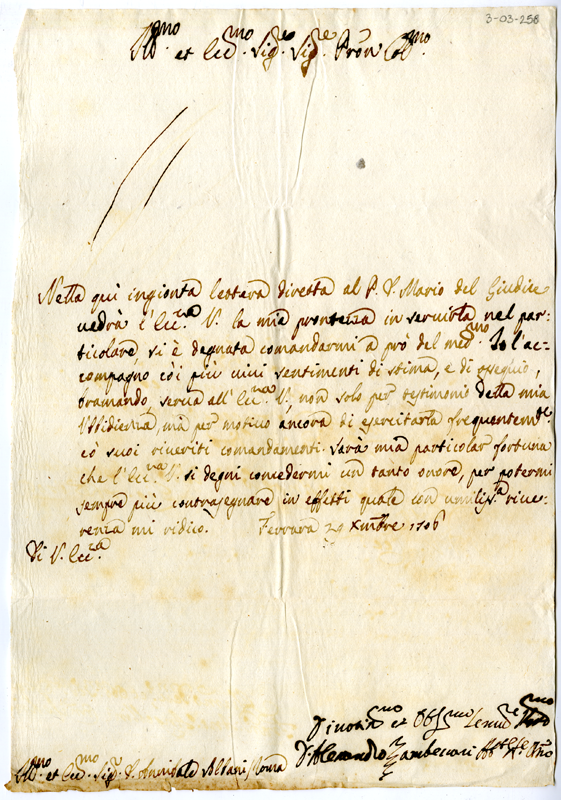 3-03-258
Ill.mo et Ecc.mo Sig.re Sig.re Pron Col.mo
Nella qui ingionta lettera diretta al P. D. Mario del Giudice
uedrà l'Ecc.za V. la mia prontezza in seruirla nel par=
ticolare, si è degnata comandarmi a prò del med.mo Io l'ac=
compagno cò i più uiui sentimenti di stima, e di ossequio,
bramando, serua all'Ecc.za V., non solo per testimonio della mia
Vbidienza, mà per motiuo ancora di esercitarla frequentem.te
cò suoi riueriti comandamenti. Sarà mia particolar fortuna
che l'Ecc.za V. si degni concedermi un tanto onore, per potermi
sempre più contrasegnare in effetti quale con umiliss.a riue=
renza mi ridico. Ferrara 29 Xmbre 1706
Di V. Ecc.za
Diuotis.mo et Obblig.mo Seruid.re
D. Alessandro Zambeccari
Ill.mo et Ecc.mo Sig. D. Annibale Albani Roma